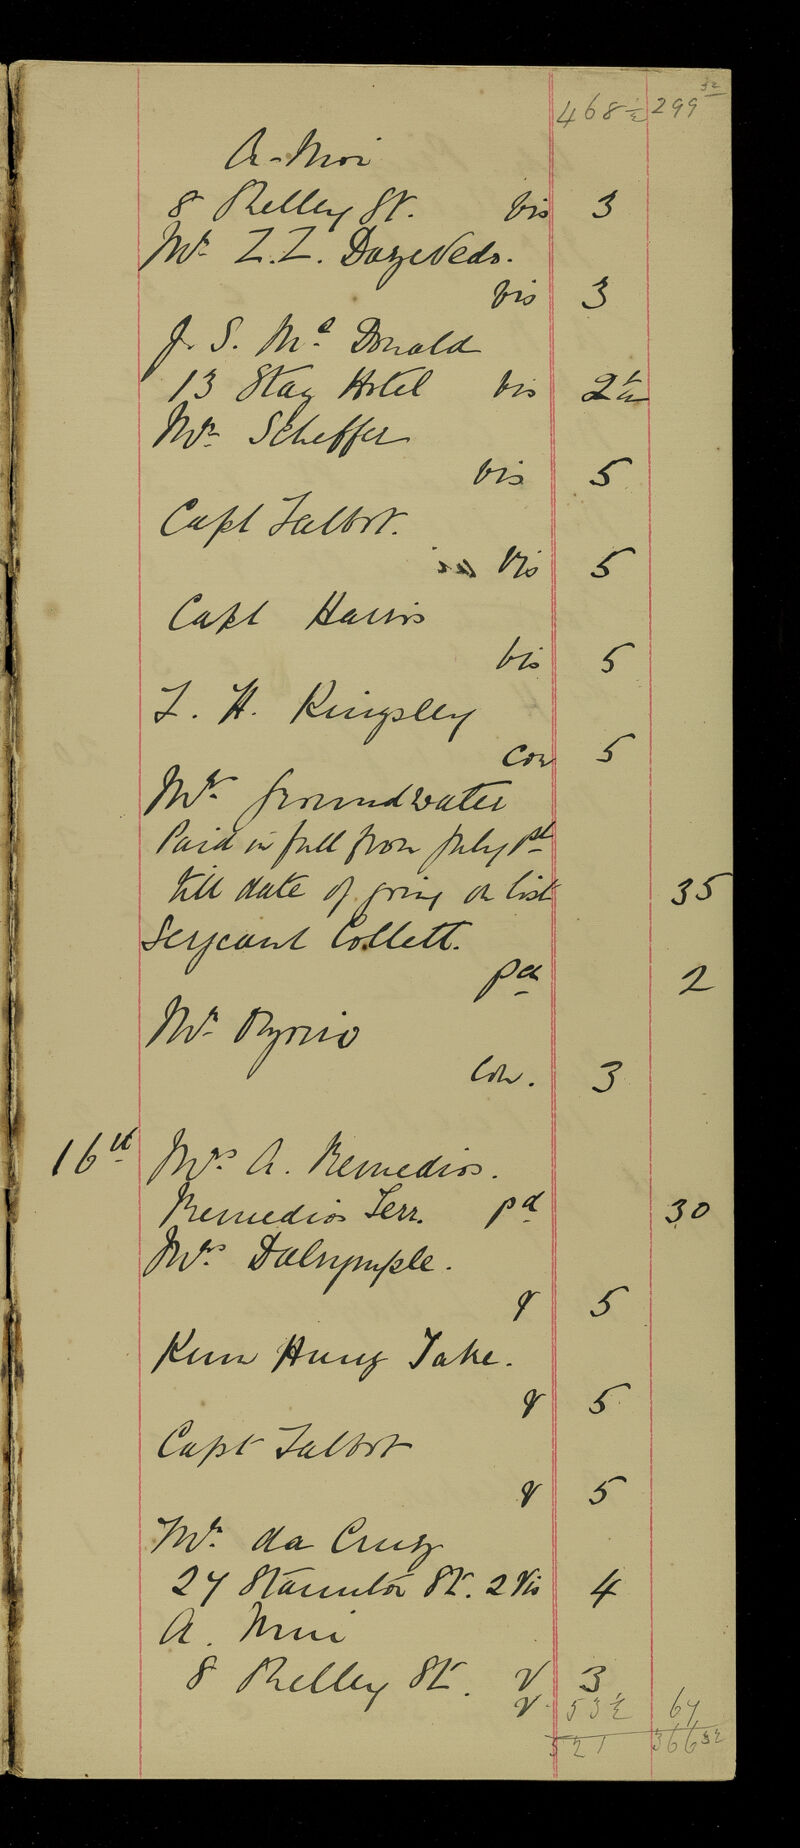 468½ 299 32
A-Moi
8 Pelley St. vis 3
Mr. Z.Z. Dazevedo.
vis 3
J. S. Mc Donald
13 Stag Hotel vis 2½
Mr. Scheffer
vis 5
Capt Talbot.
Vis 5
Capt Harris
vis 5
T. H. Kingsley
Con 5
Mr. Groundwater
Paid in full from July 1st
till date of going on list 35
Serjeant Collett.
pd 2
Mr.
Con. 3
16th Mrs. A. Remedios.
Remedios Terr. pd 30
Mrs. Dalrymple.
v 5
Kum Hung Take.
v 5
Capt Talbot
v 5
Mr. da Cruz
27 Staunton St. 2 Vis 4
A. Mui
8 Pelley St. V 3
v. 53½ 67
521 366 32